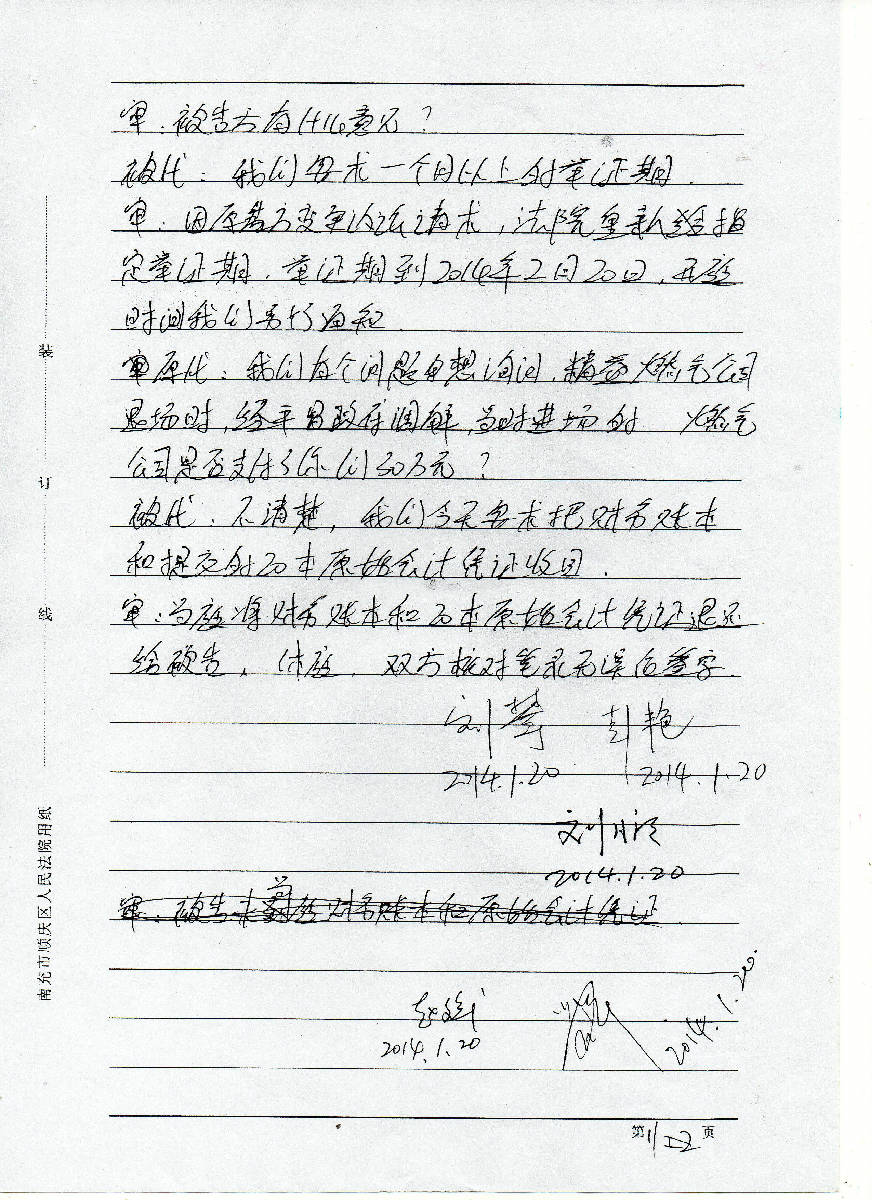 审：被告方有什么意见？
被代：我们要求一个月以上的举证期．
审：因原告方变更诉讼请求，法院重新给指
定举证期．举证期到2014年2月20日，开庭
时间我们另行通知
原代：我们有个问题想询问，精益燃气公司
退场时，经平昌政府调解，当时进场的 燃气
公司是否支付了你们30万元？
被代：不清楚，我们今天要求把财务账本
和提交的20本原始会计凭证收回．
审：当庭将财务账本和20本原始会计凭证退还
给被告，休庭，双方核对笔录无误后签字．
刘琴 彭艳
2014.1.20 2014.1.20
刘
2014.1.20
审：被告未 财务账本和原始会计凭证
赵斌
2014.1.20 2014.1.20.
第 页
装
订
线
南充市顺庆区人民法院用纸